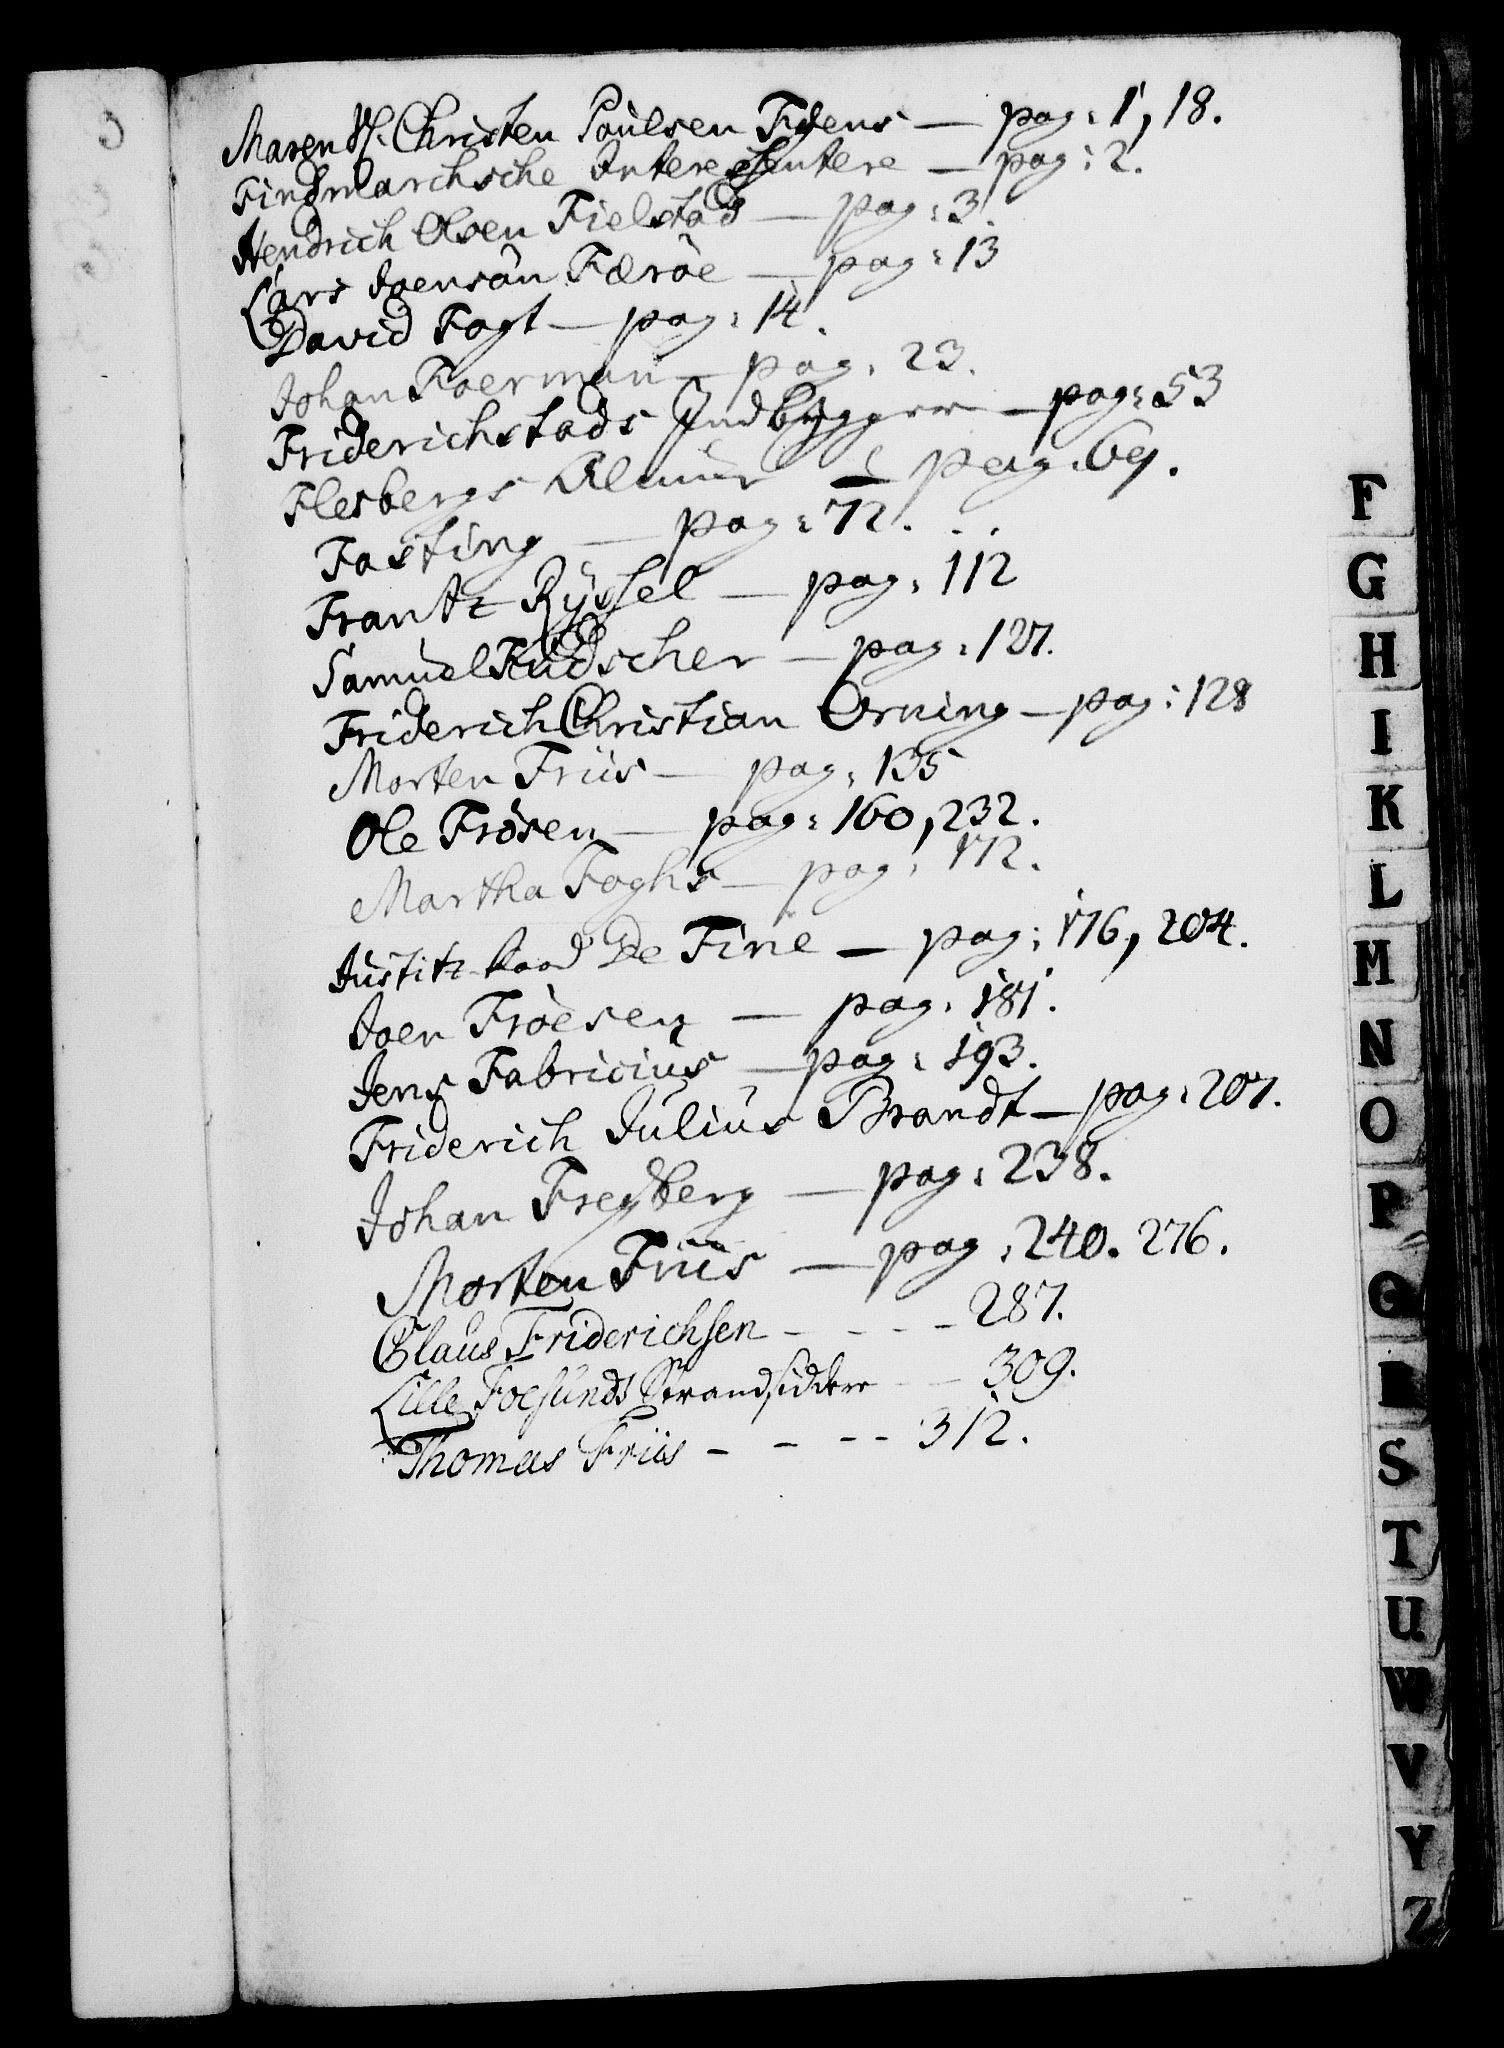 Maren Sl. Christen Poulsen Fygens — pag: 1, 18.
Findmarchsche Interessentere — pag: 2.
Hendrich Olsen Fielstad — pag: 3.
Lars Joensøn Færøe — pag: 13
David Fogt — pag: 14.
Johan Foerman — pag: 23.
Friderichstads Indbyggere — pag: 53
Flesbergs Almue — pag: 69.
Fasting — pag: 72. . .
Frantz Ryssel — pag: 112
Samuel Fudscher — pag: 127.
Friderich Christian Orning — pag: 128
Morten Friis — pag: 135
Ole Frosen — pag: 160, 232.
Martha Foghs — pag: 172.
Justitz-Raad De Fine — pag: 176, 204.
Joen Froesen — pag: 181.
Jens Fabricius — pag: 193.
Friderich Julius Brandt — pag: 207.
Johan Freyberg — pag: 238.
Morten Friis — pag: 240. 276.
Claus Friderichsen - - - - 287.
Lille Foesunds Strandsiddere - - 309.
Thomas Friis - - - - 312.
F
G
H
I
K
L
M
N
O
P
Q
R
S
T
U
W
V
Y
Z